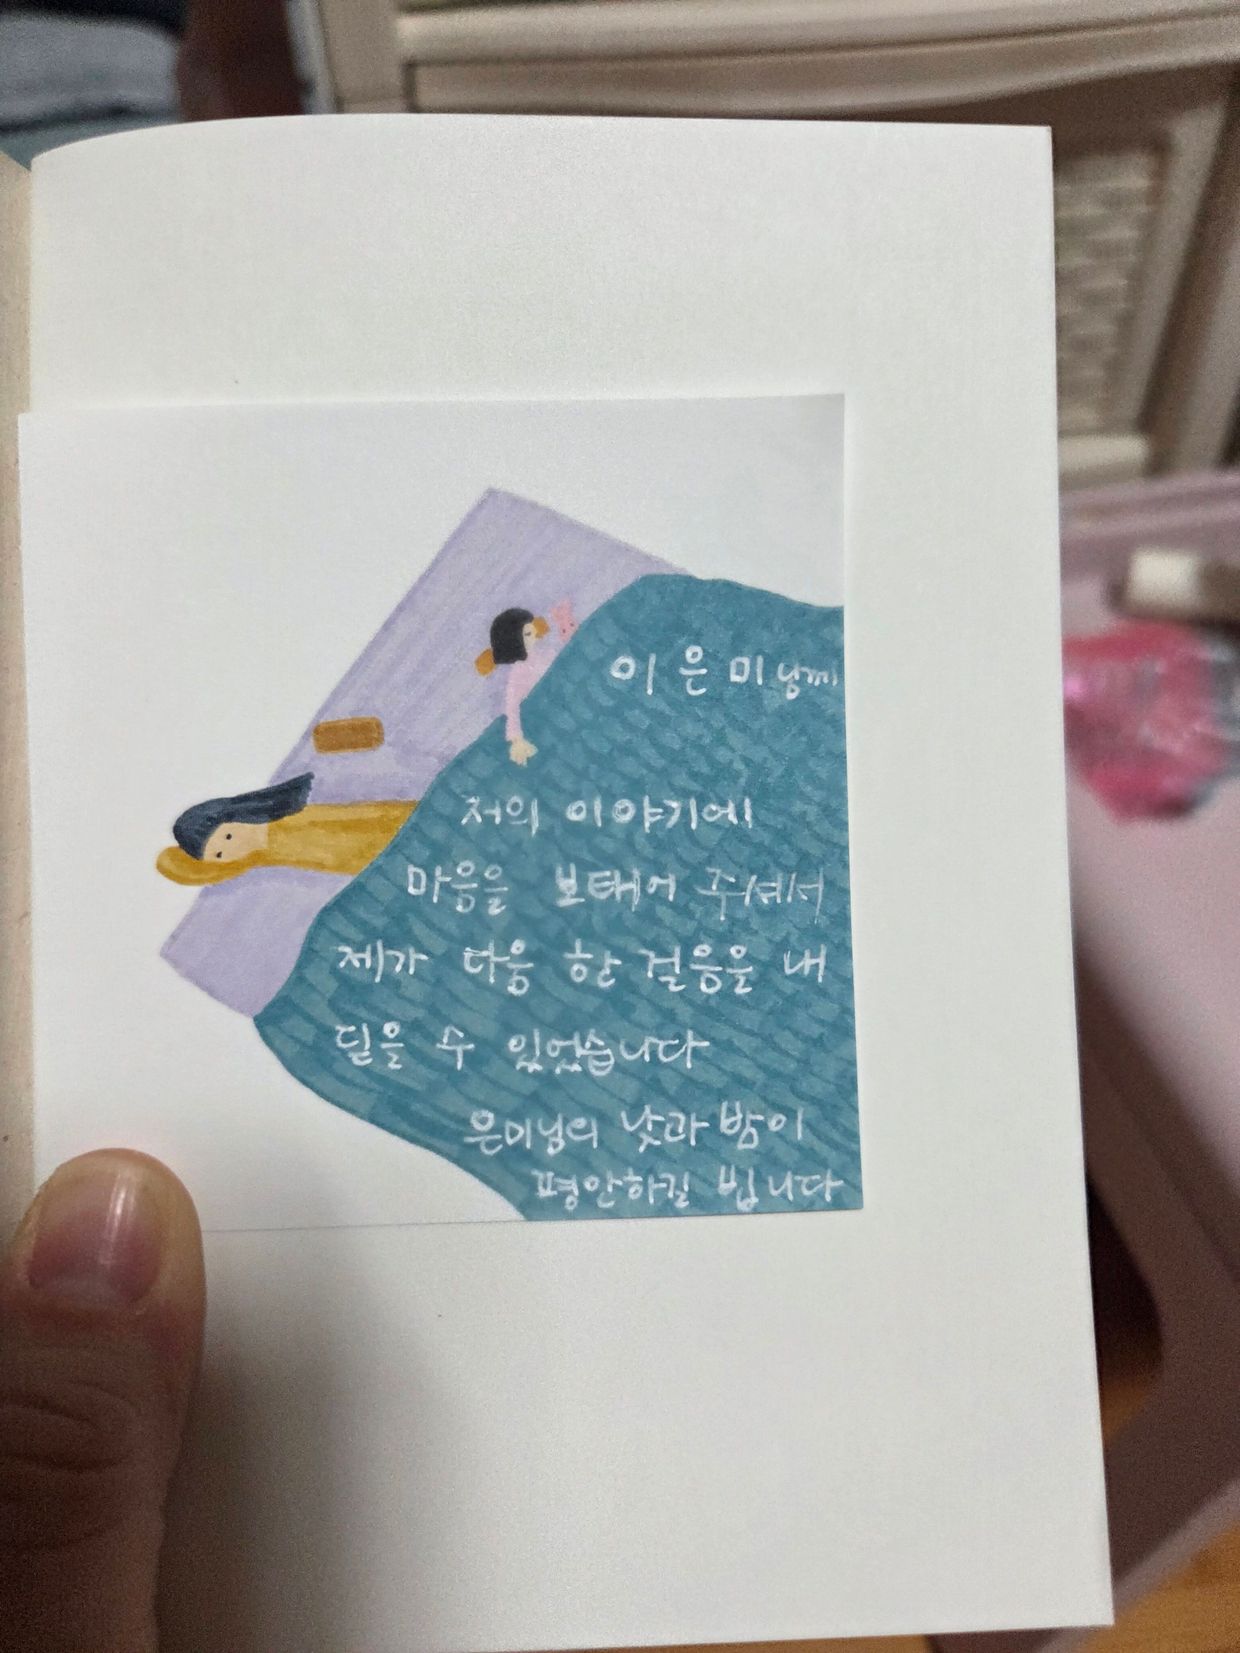 이은미님께
저의 이야기에
마음을 보태어 주셔서
제가 다음 한 걸음을 내
딛을 수 있었습니다
은미님의 낮과 밤이
평안하길 빕니다